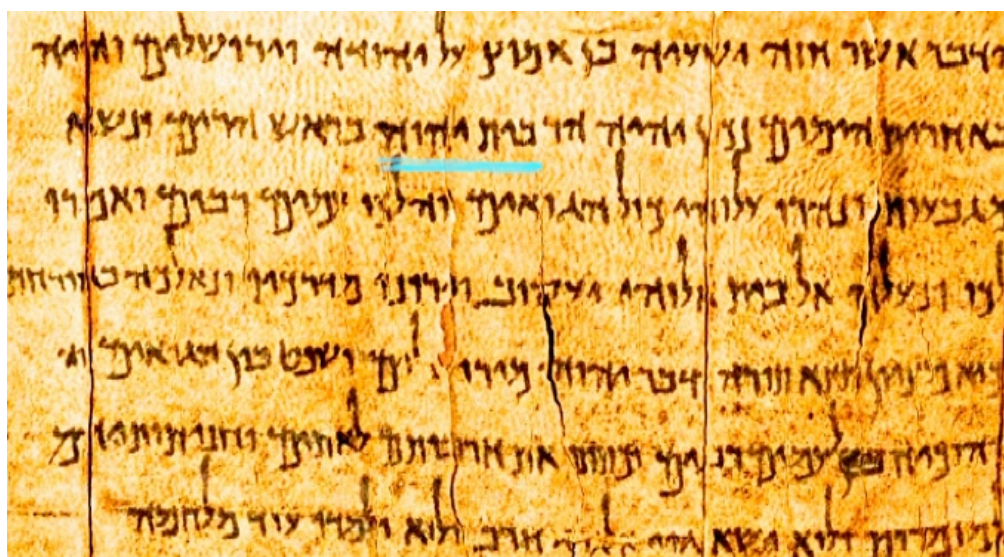 הדבר אשר חזה ישעיה בן אמוץ על יהודה וירושלים והיה
באחרית הימים נכון יהיה הר בית יהוה בראש הרים ונשא
מגבעות ונהרו עלוהי כול הגואים והלכו עמים רבים ואמרו
לכו ונעלה אל בית אלוהי יעקוב וירונו מדרכיו ונאלכה
כיא מציון תצא תורה ודבר יהוה מירושלים ושפט בין הגואים
והוכיח בין לעמים רבים וכתתו את חרבותם לאתים
למזמרות ולוא ישא גוי אל גוי חרב ולוא ילמדו עוד מלחמה